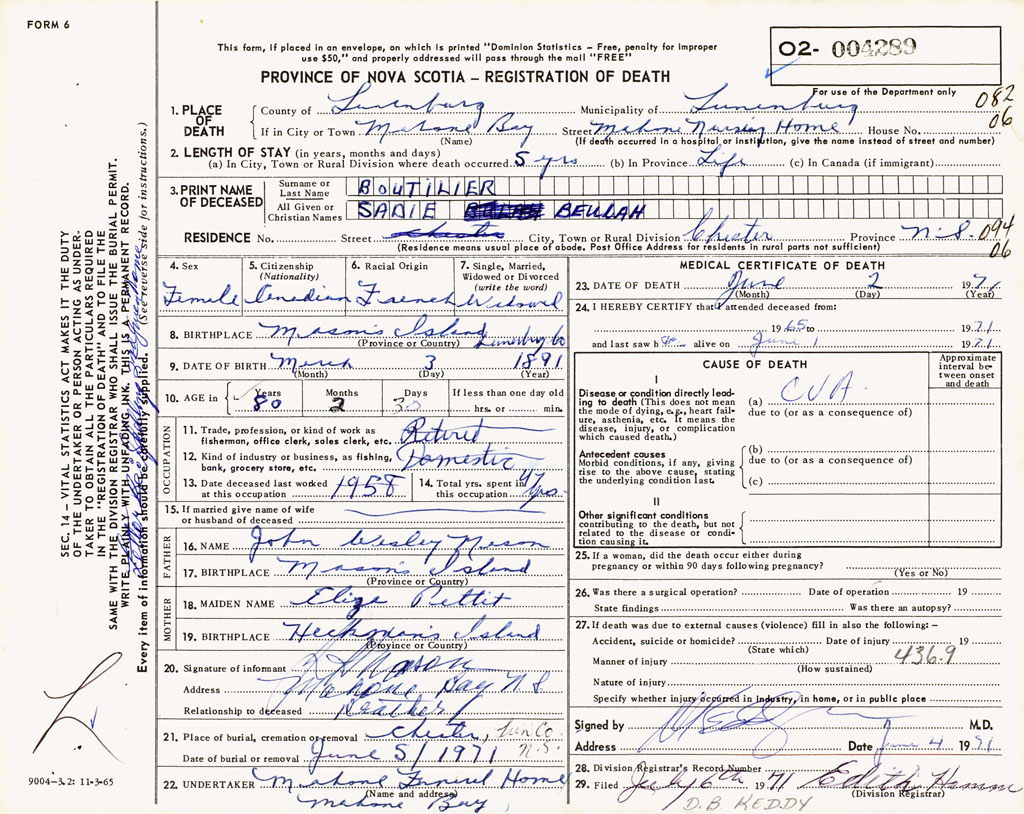 FORM 6
This form, if placed in an envelope, on which is printed "Dominion Statistics – Free, penalty for improper
use $50," and properly addressed will pass through the mail "FREE"
PROVINCE OF NOVA SCOTIA – REGISTRATION OF DEATH
02- 004289
For use of the Department only
082
06
1. PLACE OF DEATH
County of Lunenburg Municipality of Lunenburg
If in City or Town Mahone Bay Street Mahone Nursing Home House No.
(Name) (If death occurred in a hospital or institution, give the name instead of street and number)
2. LENGTH OF STAY (in years, months and days)
(a) In City, Town or Rural Division where death occurred 5 yrs (b) In Province Life (c) In Canada (if immigrant)
3. PRINT NAME OF DECEASED
Surname or Last Name BOUTILIER
All Given or Christian Names SADIE BEULAH
RESIDENCE No. Street Chester City, Town or Rural Division Chester Province N.S. 094
(Residence means usual place of abode. Post Office Address for residents in rural parts not sufficient)
06
4. Sex Female
5. Citizenship (Nationality) Canadian
6. Racial Origin French
7. Single, Married, Widowed or Divorced (write the word) Widowed
8. BIRTHPLACE Mason's Island Lunenburg Co
(Province or Country)
9. DATE OF BIRTH March 3 1891
(Month) (Day) (Year)
10. AGE in Years 80 Months 2 Days 30 If less than one day old hrs. or min.
OCCUPATION
11. Trade, profession, or kind of work as fisherman, office clerk, sales clerk, etc. Retired
12. Kind of industry or business, as fishing, bank, grocery store, etc. Domestic
13. Date deceased last worked at this occupation 1958
14. Total yrs. spent in this occupation 47 yrs.
15. If married give name of wife or husband of deceased
FATHER
16. NAME John Wesley Mason
17. BIRTHPLACE Mason's Island
(Province or Country)
MOTHER
18. MAIDEN NAME Eliza Pettit
19. BIRTHPLACE Heckman's Island
(Province or Country)
20. Signature of informant Mason
Address Mahone Bay N.S.
Relationship to deceased
21. Place of burial, cremation or removal Chester, Lun Co. N.S.
Date of burial or removal June 5/1971
22. UNDERTAKER Mahone Funeral Home
(Name and address)
Mahone Bay
MEDICAL CERTIFICATE OF DEATH
23. DATE OF DEATH June 2 1971
(Month) (Day) (Year)
24. I HEREBY CERTIFY that I attended deceased from:
1965 to 1971
and last saw h alive on June 1 1971
CAUSE OF DEATH
Approximate interval between onset and death
I
Disease or condition directly leading to death (This does not mean the mode of dying, e.g., heart failure, asthenia, etc. It means the disease, injury, or complication which caused death.)
(a) CVA
due to (or as a consequence of)
Antecedent causes
Morbid conditions, if any, giving rise to the above cause, stating the underlying condition last.
(b)
due to (or as a consequence of)
(c)
II
Other significant conditions
contributing to the death, but not related to the disease or condition causing it.
25. If a woman, did the death occur either during
pregnancy or within 90 days following pregnancy?
(Yes or No)
26. Was there a surgical operation? Date of operation 19
State findings Was there an autopsy?
27. If death was due to external causes (violence) fill in also the following: –
Accident, suicide or homicide? Date of injury 19
(State which)
436.9
Manner of injury
(How sustained)
Nature of injury
Specify whether injury occurred in industry, in home, or in public place
Signed by M.D.
Address Date June 4 1971
28. Division Registrar's Record Number
29. Filed July 6th 1971
(Division Registrar)
D.B. KEDDY
SEC. 14 – VITAL STATISTICS ACT MAKES IT THE DUTY
OF THE UNDERTAKER OR PERSON ACTING AS UNDER-
TAKER TO OBTAIN ALL THE PARTICULARS REQUIRED
IN THE "REGISTRATION OF DEATH" AND TO FILE THE
SAME WITH THE DIVISION REGISTRAR WHO SHALL ISSUE THE BURIAL PERMIT.
WRITE PLAINLY WITH UNFADING INK. THIS IS A PERMANENT RECORD.
Every item of information should be carefully supplied. (See reverse side for instructions.)
9004-3.2: 11-3-65